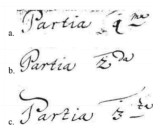 a. Partia 1 ma
b. Partia 2 da
c. Partia 3 tia